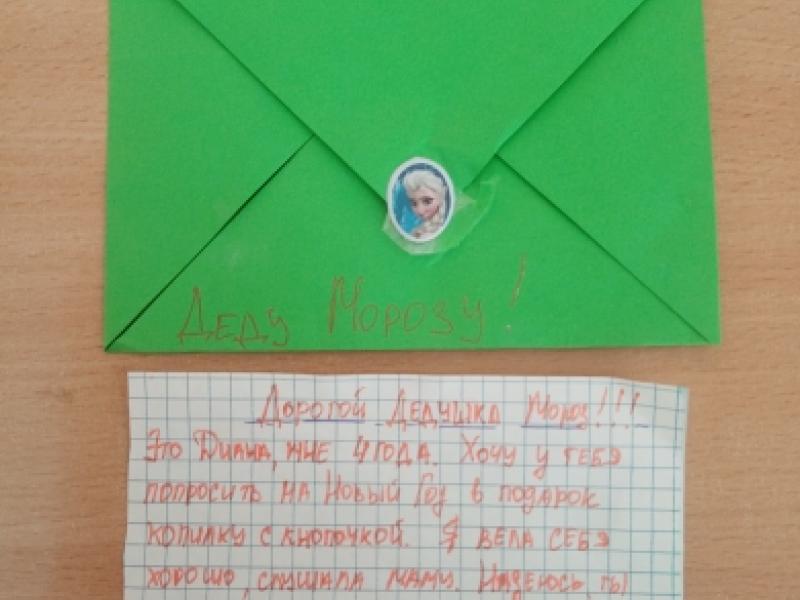 Деду Морозу!
Дорогой Дедушка Мороз!!!
Это Диана, мне 4 года. Хочу у тебя
попросить на Новый Год в подарок
копилку с кнопочкой. Я вела себя
хорошо, слушала маму. Надеюсь, ты